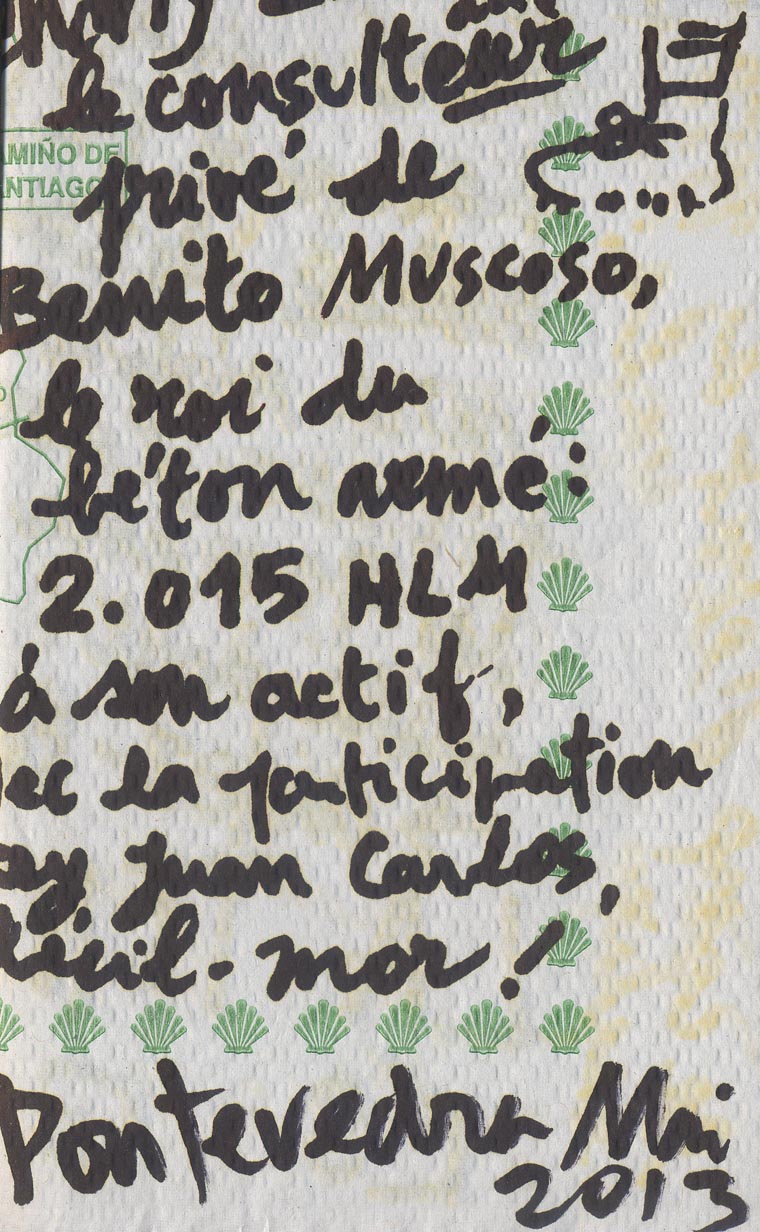 le consulteur
AMIÑO DE
ANTIAGO
privé de
Benito Muscoso,
le roi du
béton armé:
2.015 HLM
à son actif,
ec la participation
ay Juan Carlos,
mor!
Pontevedra Mai
2013